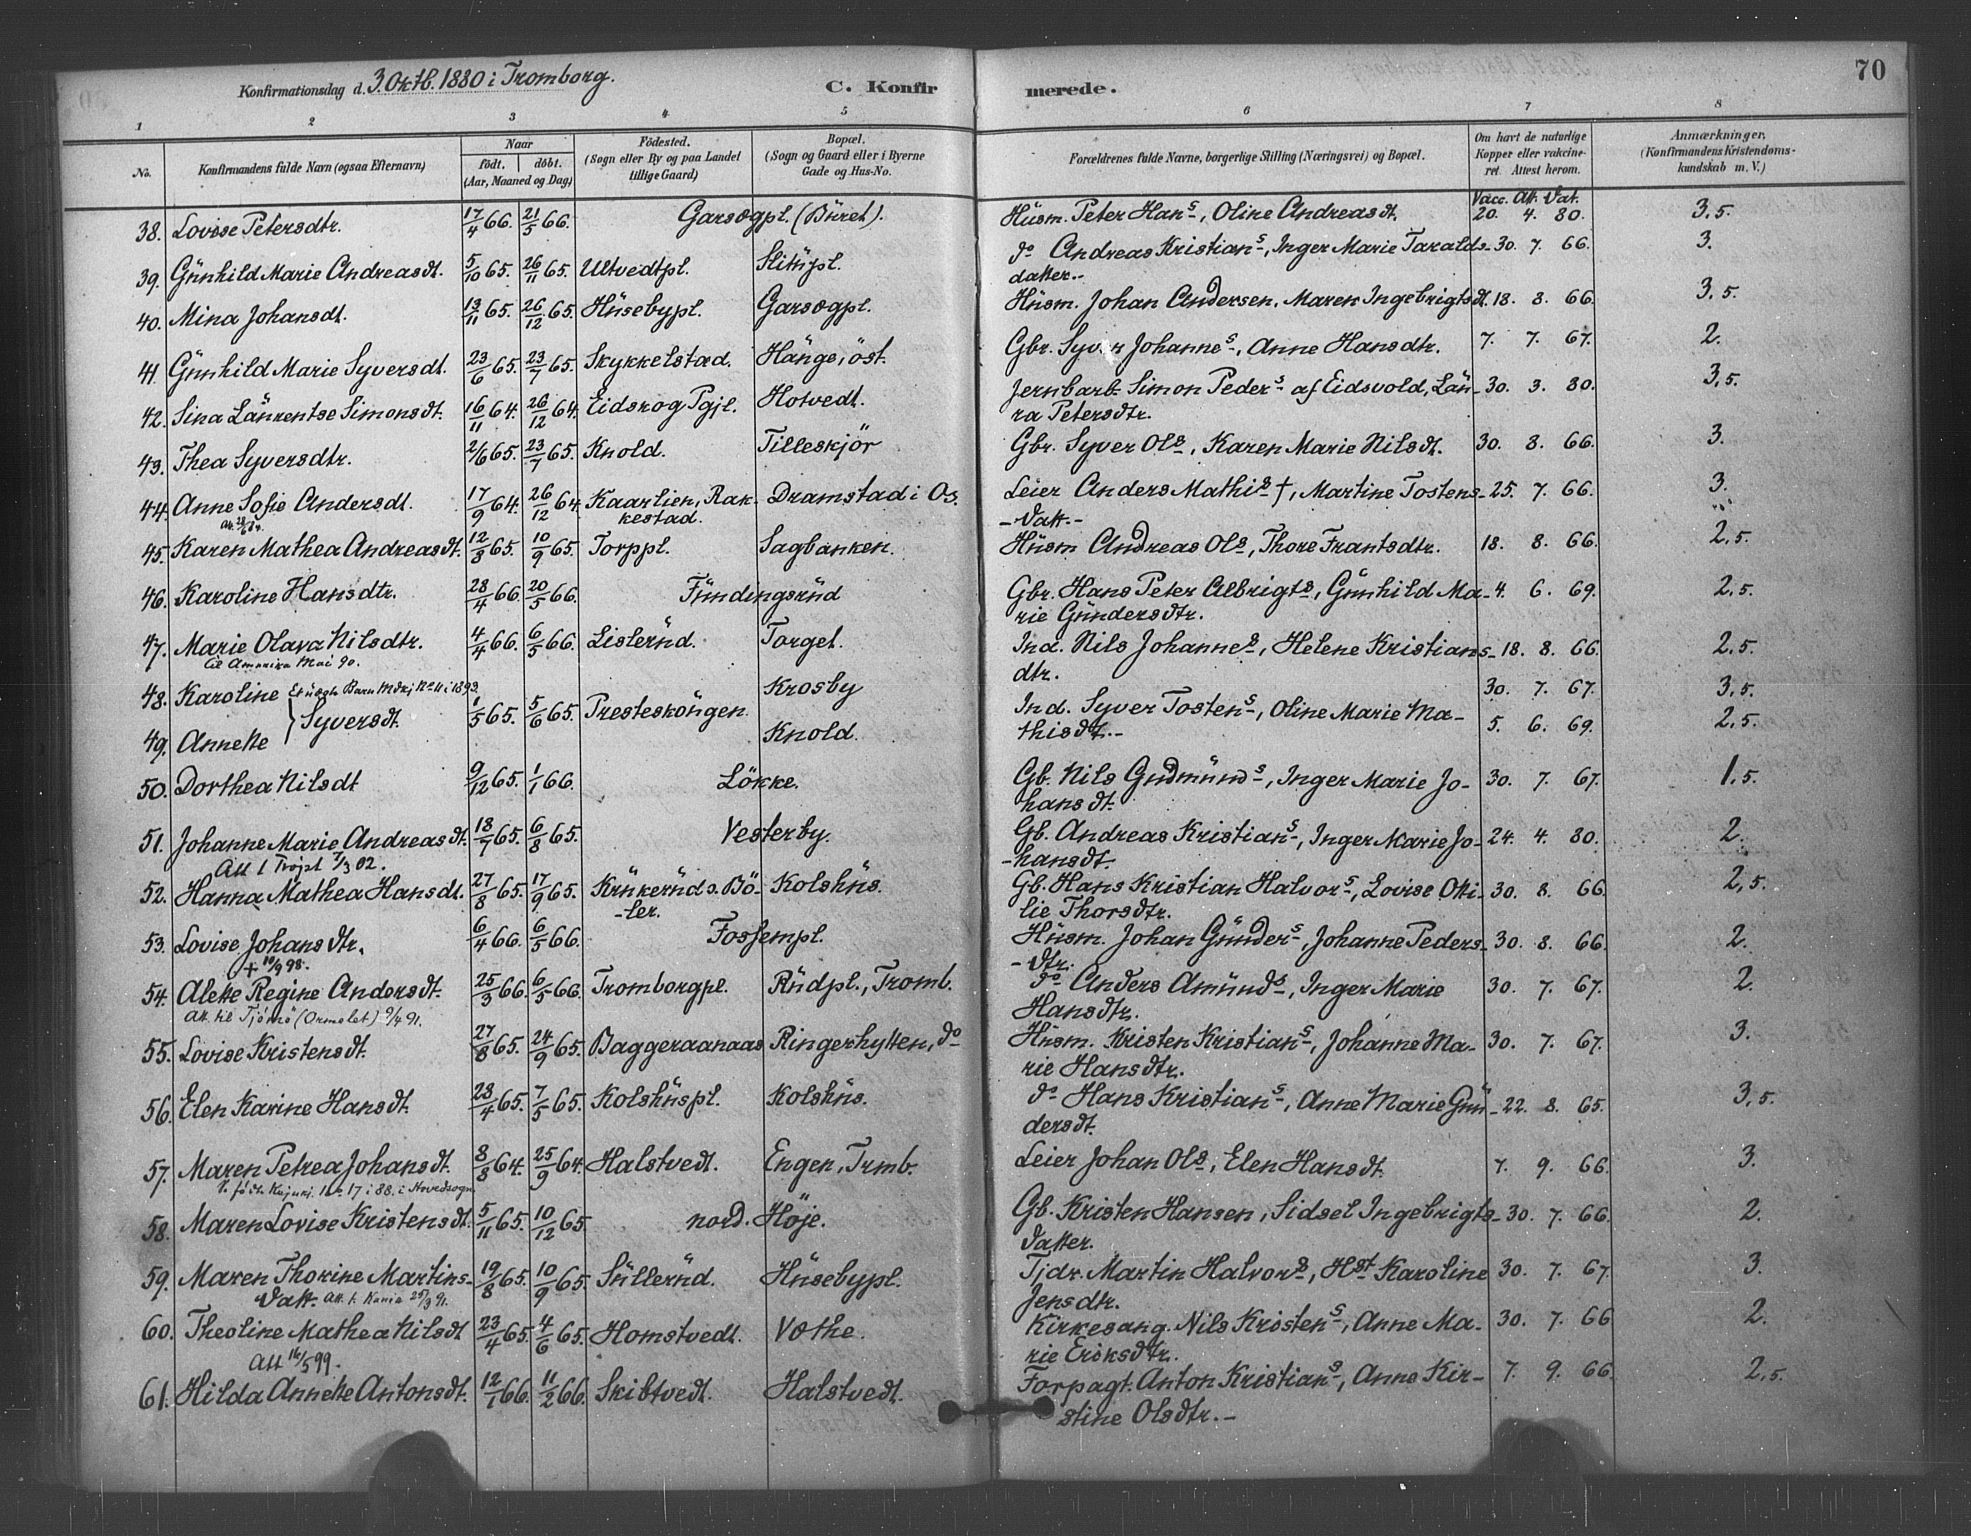 70
Konfirmationsdag d. 3. Oktb. 1880 i Tromborg.
C. Konfirmerede.
1 2 3 4 5 6 7 8
No. Konfirmandens fulde Navn (ogsaa Efternavn) Naar født. døbt. (Aar, Maaned og Dag) Fødested. (Sogn eller By og paa Landet tillige Gaard) Bopæl. (Sogn og Gaard eller i Byerne Gade og Hus-No. Forældrenes fulde Navne, borgerlige Stilling (Næringsvei) og Bopæl. Om havt de naturlige Kopper eller vakcineret. Attest herom. Anmærkninger. (Konfirmandens Kristendomskundskab m. V.)
Vacc. Att. Dat.
38. Lovise Petersdtr. 17/4 66. 21/5 66. Garsegpl. (Büret). Hüsm. Peter Hans, Oline Andreasdt. 20. 4. 80. 3,5.
39. Günhild Marie Andreasdt. 5/10 65. 26/11 65. Ultvedtpl. Slitüpl. do Andreas Kristians, Inger Marie Taralds- 30. 7. 66. 3.
datter.-
40. Mina Johansdt. 13/11 65. 26/12 65. Hüsebypl. Garsegpl. Hüsm. Johan Andersen, Maren Ingebrigtsdt. 18. 8. 66. 3,5.
41. Günhild Marie Syversdt. 23/6 65. 23/7 65. Skykkelstad. Hänge, öst. Gbr. Syver Johannes, Anne Hansdtr. 7. 7. 67. 2.
42. Sina Läurentse Simonsdt. 16/11 64. 26/12 64. Eidskog Pgjl. Hotvedt. Jernbarb. Simon Peders af Eidsvold, Laü- 30. 3. 80. 3,5.
ra Petersdtr.
43. Thea Syversdtr. 2/6 65. 23/7 65. Knold. Tilleskjör Gbr. Syver Ols, Karen Marie Nilsdt. 30. 8. 66. 3.
44. Anne Sofie Andersdt. 17/9 64. 26/12 64. Kaarlien, Rak- Dramstad i Os. Leier Anders Mathis †, Martine Tostens- 25. 7. 66. 3.
kestad. -Datt.-
45. Karen Mathea Andreasdt. 12/8 65. 10/9 65. Torppl. Sagbanken. Hüsm Andreas Ols, Thore Frantsdtr. 18. 8. 66. 2,5.
46. Karoline Hansdtr. 28/4 66. 20/5 66. Fündingsrüd Gbr. Hans Peter Albrigts, Günhild Ma- 4. 6. 69. 2,5.
rie Gündersdtr.
47. Marie Olava Nilsdtr. 4/4 66. 6/5 66. Lislerüd. Torget. Ind. Nils Johannes, Helene Kristians- 18. 8. 66. 2,5.
til Amerika Mai 90. dtr.
48. Karoline Et uægte Barn No 11 i 1893. Krosby 30. 7. 67. 3,5.
Syversdt. 1/5 65. 5/6 65. Presteskongen. Ind. Syver Tostens, Oline Marie Ma-
49. Annette Knold. thisdt.- 5. 6. 69. 2,5.
50. Dorthea Nilsdt 9/12 65. 1/1 66. Lökke. Gb. Nils Gudmünds, Inger Marie Jo- 30. 7. 67. 1,5.
hansdt.
51. Johanne Marie Andreasdt. 18/7 65. 6/8 65. Vesterby. Gb. Andreas Kristians, Inger Marie Jo- 24. 4. 80. 2.
Att t Trøgst 7/3 02. -hansdt.
52. Hanna Mathea Hansdt. 27/8 65. 17/9 65. Krükerüd s. Bö- Kolshüs. Gb. Hans Kristian Halvors, Lovise Otti- 30. 8. 66. 2,5.
-ler. lie Thorsdtr.
53. Lovise Johansdtr. 6/4 66. 6/5 66. Fossempl. Hüsm. Johan Günders, Johanne Peders- 30. 8. 66. 2.
† 10/9 98. -Dtr.
54. Alette Regine Andersdt. 25/3 66. 6/5 66. Tromborgpl. Rüdpl., Tromb. do Anders Amünds, Inger Marie 30. 7. 67. 2.
Att. til Tjömö (Ormelet) 9/4 91. Hansdtr.
55. Lovise Kristensdt. 27/8 65. 24/9 65. Baggeraanaas Ringerhytten, do Hüsm. Kristen Kristians, Johanne Ma- 30. 7. 67. 3.
rie Hansdtr.
56. Elen Karine Hansdt. 23/4 65. 7/5 65. Kolshüspl. Kolshüs. do Hans Kristians, Anne Marie Gün- 22. 8. 65. 3,5.
dersdt.
57. Maren Petrea Johansdt. 8/8 64. 25/9 64. Halstvedt. Engen, Trmb. Leier Johan Ols, Elen Hansdt. 7. 9. 66. 3.
17 i 88. i Hovedsogn.
58. Maren Lovise Kristensdt. 5/11 65. 10/12 65 nord. Höje. Gb. Kristen Hansen, Sidsel Ingebrigts- 30. 7. 66. 2.
Datter.
59. Maren Thorine Martins- 19/8 65. 10/9 65. Süllerüd. Hüsebypl. Tjdr. Martin Halvors, Hst Karoline 30. 7. 67. 3.
Datt. Att. t. Krania 25/3 91. Jensdtr.
60. Theoline Mathea Nilsdt 23/4 65. 4/6 65. Homstvedt. Vöthe. Kirkesang. Nils Kristens, Anne Ma- 30. 7. 66 2.
Att 16/5 99. rie Eriksdtr.
61. Hilda Annette Antonsdt. 12/1 66. 11/2 66. Skibtvedt. Halstvedt. Forpagt. Anton Kristians, Anne Kir- 7. 9. 66. 2,5.
stine Olsdtr.-